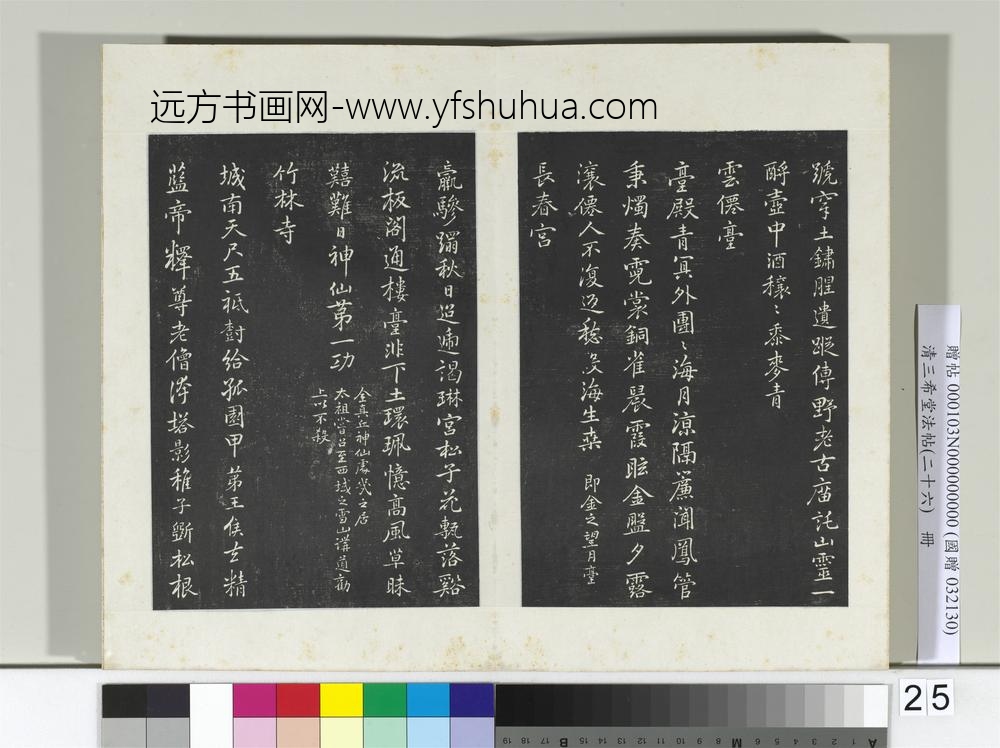 远方书画网-www.yfshuhua.com
號穿土鏽腥遺蹤傳野老古庿託山靈一
酹壺中酒穰〻黍麥青
雲僊臺
臺殿青冥外團〻海月涼隔簾聞鳳管
秉燭奏霓裳銅雀晨霞眩金盤夕露
瀼僊人不復返愁海生桒
即金之望月臺
長春宮
羸驂躡秋日迢遞謁琳宮松子花甎落谿
流板閣通樓臺非下土環珮憶高風草昧
囏難日神仙第一功
全真丘神仙處幾之居
太祖嘗召至西域之雪山講道勸
上以不殺
竹林寺
城南天尺五祗樹給孤園甲第王侯去精
藍帝釋尊老僧浮塔影稚子斸松根
贈帖 000103N000000000 (國贈 032130)
清三希堂法帖(二十六) 冊
25
19 18 17 16 B 15 14 13 12 11 10 9 8 7 M 6 5 4 3 2 1 A